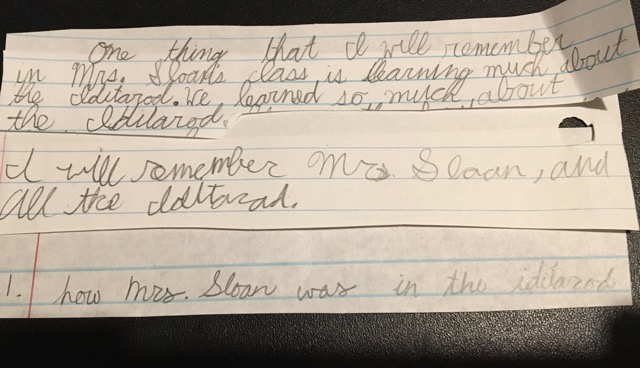 One thing that I will remember
in Mrs. Sloan's class is learning much about
the Iditarod. We learned so much about
the Iditarod.
I will remember Mrs. Sloan, and
All the Iditarad.
1. how Mrs. Sloan was in the iditarod